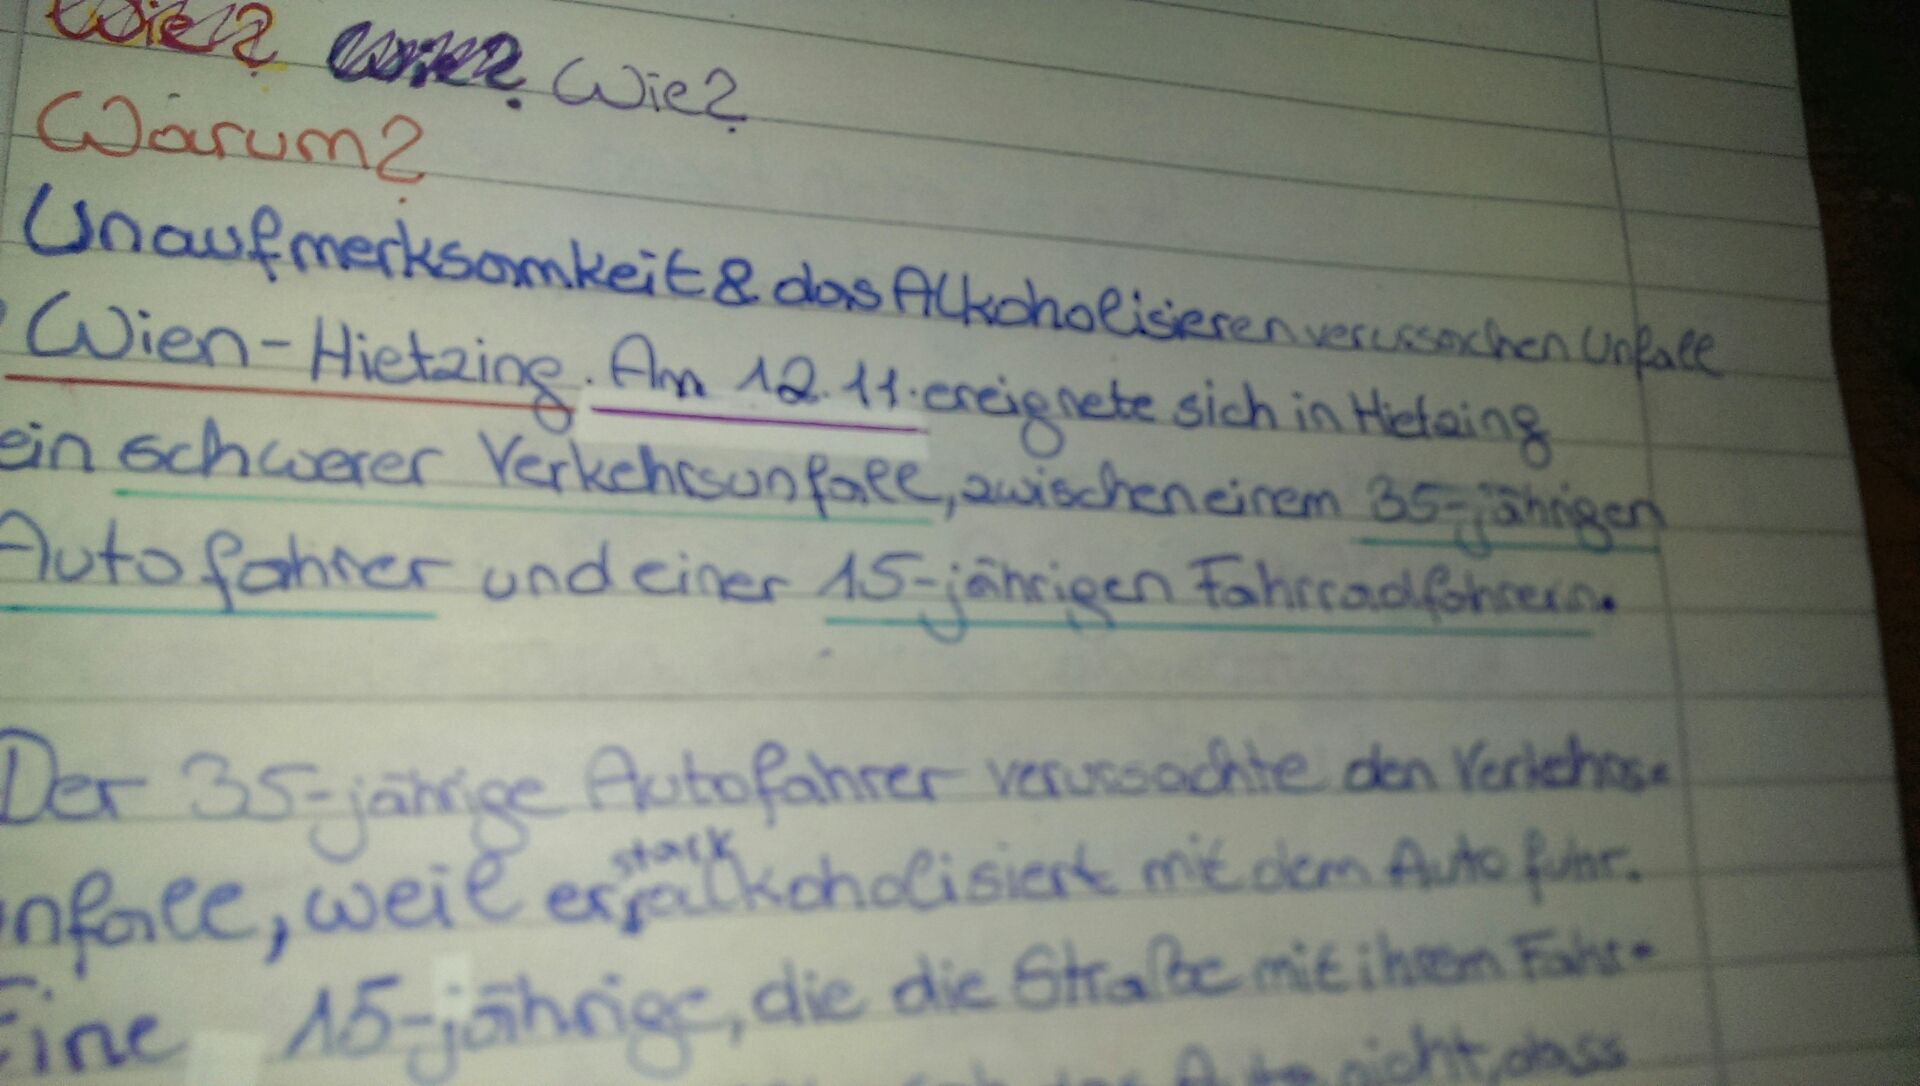 Wie? Wie?
Warum?
Unaufmerksamkeit & das Alkoholisieren verussachen Unfall
Wien-Hietzing. Am 12.11. ereignete sich in Hietzing
ein schwerer Verkehrsunfall, zwischen einem 35-jährigen
Autofahrer und einer 15-jährigen Fahrradfahrerin.
Der 35-jährige Autofahrer verussachte den Verkehrs-
unfall, weil er stark alkoholisiert mit dem Auto fuhr.
Eine 15-jährige, die die Straße mit ihrem Fahr-
Auto nicht, dass